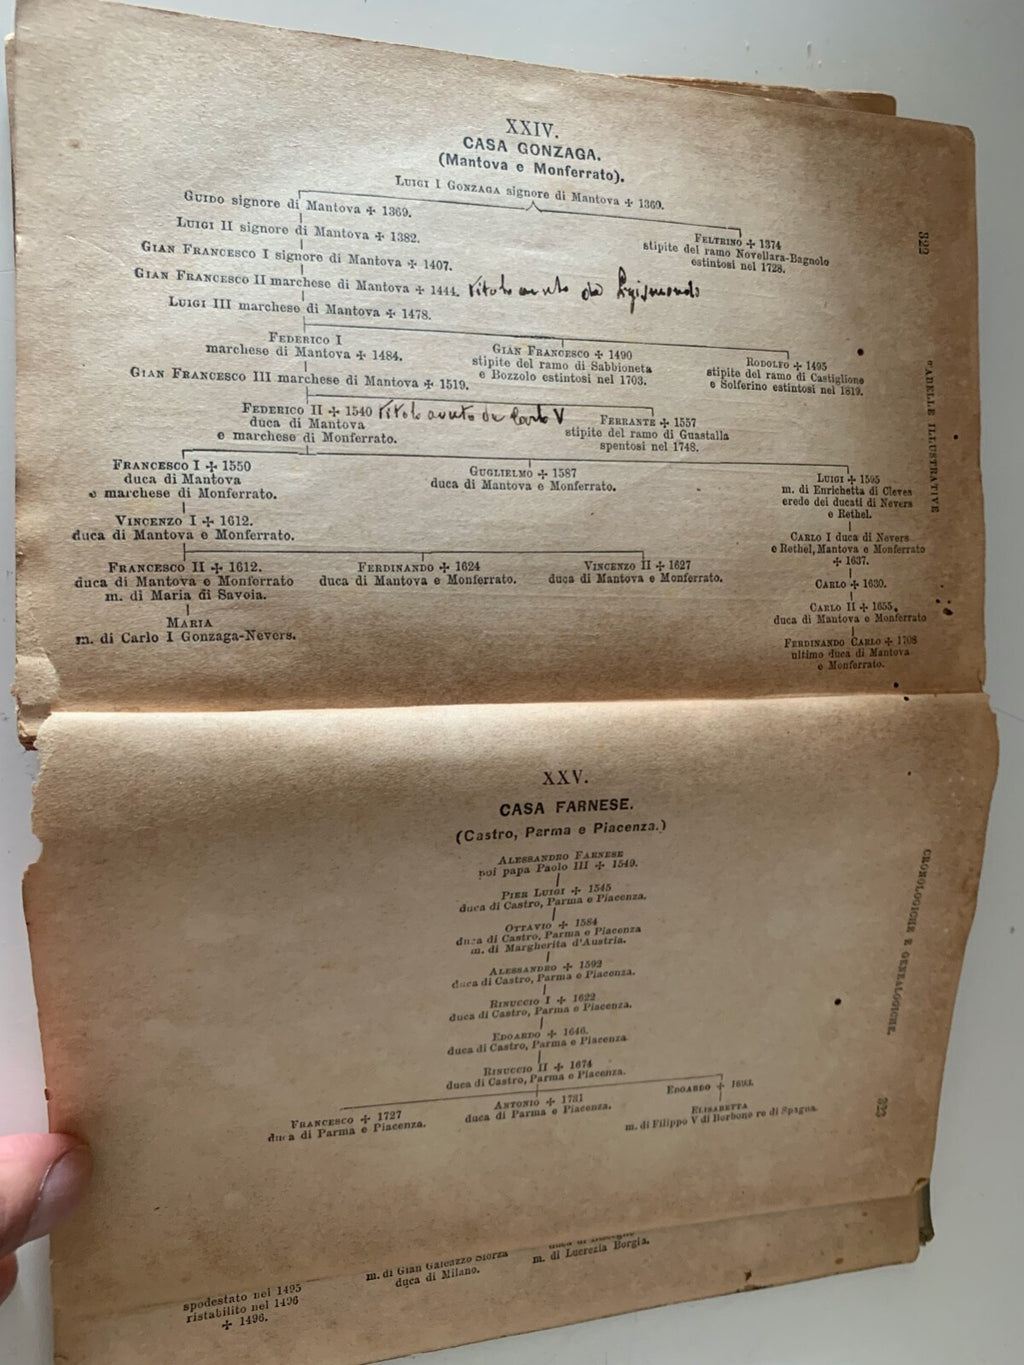 XXIV.
CASA GONZAGA.
(Mantova e Monferrato).
LUIGI I GONZAGA signore di Mantova ✢ 1369.
GUIDO signore di Mantova ✢ 1369.
FELTRINO ✢ 1374
stipite del ramo Novellara-Bagnolo
estintosi nel 1728.
LUIGI II signore di Mantova ✢ 1382.
GIAN FRANCESCO I signore di Mantova ✢ 1407.
GIAN FRANCESCO II marchese di Mantova ✢ 1444. titolo avuto da Sigismondo
LUIGI III marchese di Mantova ✢ 1478.
FEDERICO I
marchese di Mantova ✢ 1484.
GIAN FRANCESCO ✢ 1490
stipite del ramo di Sabbioneta
e Bozzolo estintosi nel 1703.
RODOLFO ✢ 1495
stipite del ramo di Castiglione
e Solferino estintosi nel 1819.
GIAN FRANCESCO III marchese di Mantova ✢ 1519.
FEDERICO II ✢ 1540 titolo avuto da Carlo V
duca di Mantova
e marchese di Monferrato.
FERRANTE ✢ 1557
stipite del ramo di Guastalla
spentosi nel 1748.
FRANCESCO I ✢ 1550
duca di Mantova
e marchese di Monferrato.
GUGLIELMO ✢ 1587
duca di Mantova e Monferrato.
LUIGI ✢ 1595
m. di Enrichetta di Cleves
erede dei ducati di Nevers
e Rethel.
VINCENZO I ✢ 1612.
duca di Mantova e Monferrato.
CARLO I duca di Nevers
e Rethel, Mantova e Monferrato
✢ 1637.
FRANCESCO II ✢ 1612.
duca di Mantova e Monferrato
m. di Maria di Savoia.
FERDINANDO ✢ 1624
duca di Mantova e Monferrato.
VINCENZO II ✢ 1627
duca di Mantova e Monferrato.
CARLO ✢ 1630.
MARIA
m. di Carlo I Gonzaga-Nevers.
CARLO II ✢ 1655.
duca di Mantova e Monferrato
FERDINANDO CARLO ✢ 1708
ultimo duca di Mantova
e Monferrato.
322
TABELLE ILLUSTRATIVE
XXV.
CASA FARNESE.
(Castro, Parma e Piacenza.)
ALESSANDRO FARNESE
poi papa Paolo III ✢ 1549.
PIER LUIGI ✢ 1545
duca di Castro, Parma e Piacenza.
OTTAVIO ✢ 1584
duca di Castro, Parma e Piacenza
m. di Margherita d'Austria.
ALESSANDRO ✢ 1592
duca di Castro, Parma e Piacenza.
RINUCCIO I ✢ 1622
duca di Castro, Parma e Piacenza.
EDOARDO ✢ 1646.
duca di Castro, Parma e Piacenza.
RINUCCIO II ✢ 1674
duca di Castro, Parma e Piacenza.
FRANCESCO ✢ 1727
duca di Parma e Piacenza.
ANTONIO ✢ 1731
duca di Parma e Piacenza.
EDOARDO ✢ 1693.
ELISABETTA
m. di Filippo V di Borbone re di Spagna.
CRONOLOGICHE E GENEALOGICHE.
323
spodestato nel 1495
ristabilito nel 1496
✢ 1496.
m. di Gian Galeazzo Sforza
duca di Milano.
m. di Lucrezia Borgia.